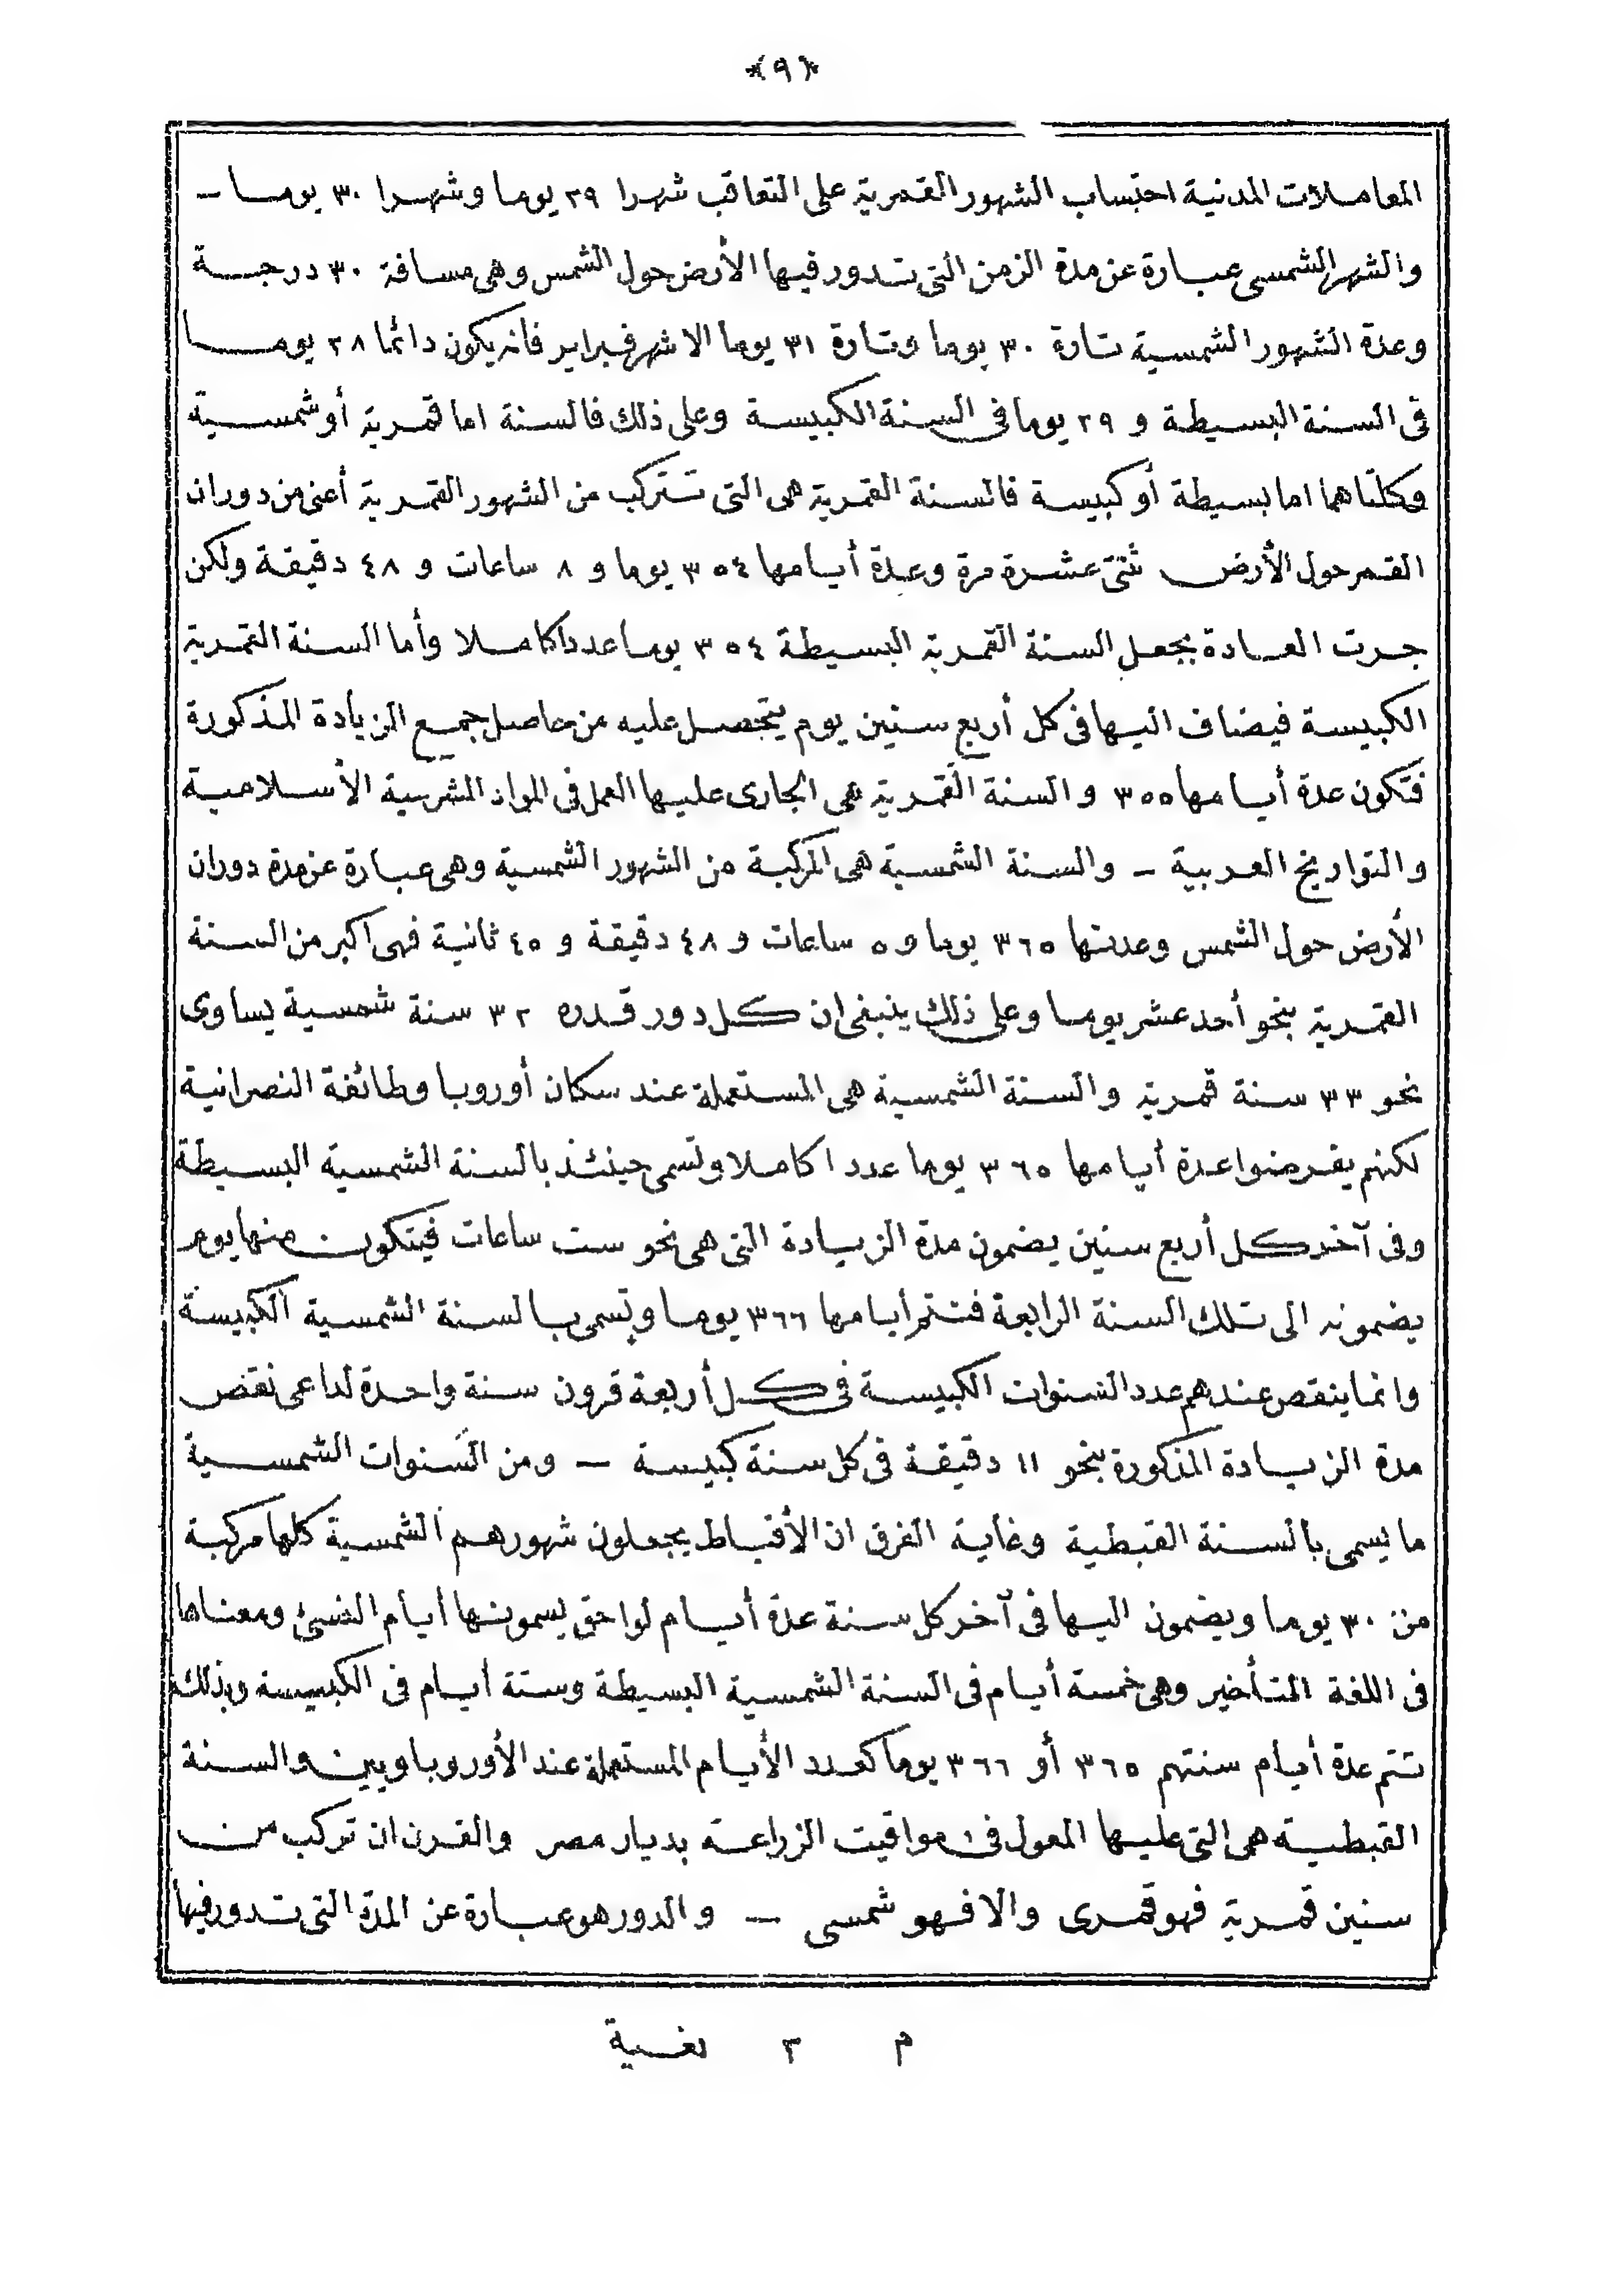 *(٩)*
المعاملات المدنية احتساب الشهور القمرية على التعاقب شهرا ٢٩ يوما وشهرا ٣٠ يوما —
والشهر الشمسى عبارة عن مدة الزمن التى تدور فيها الأرض حول الشمس وهى مسافة ٣٠ درجة
وعدة الشهور الشمسية تارة ٣٠ يوما وتارة ٣١ يوما الا شهر فبراير فانه يكون دائما ٢٨ يوما
فى السنة البسيطة و ٢٩ يوما فى السنة الكبيسة وعلى ذلك فالسنة اما قمرية أو شمسية
وكلتاهما اما بسيطة أو كبيسة فالسنة القمرية هى التى تتركب من الشهور القمرية أعنى من دوران
القمر حول الأرض ثنتى عشرة مرة وعدة أيامها ٣٥٤ يوما و ٨ ساعات و ٤٨ دقيقة ولكن
جرت العادة بجعل السنة القمرية البسيطة ٣٥٤ يوما عددا كاملا وأما السنة القمرية
الكبيسة فيضاف اليها فى كل أربع سنين يوم يتحصل عليه من حاصل جمع الزيادة المذكورة
فتكون عدة أيامها ٣٥٥ و السنة القمرية هى الجارى عليها العمل فى المواد الشرعية الأسلامية
والتواريخ العربية — والسنة الشمسية هى المركبة من الشهور الشمسية وهى عبارة عن مدة دوران
الأرض حول الشمس وعدتها ٣٦٥ يوما و ٥ ساعات و ٤٨ دقيقة و ٤٥ ثانية فهى اكبر من السنة
القمرية بنحو أحد عشر يوما وعلى ذلك ينبغى ان كل دور قدره ٣٢ سنة شمسية يساوى
نحو ٣٣ سنة قمرية والسنة الشمسية هى المستعملة عند سكان أوروبا وطائفة النصرانية
لكنهم يفرضوا عدة أيامها ٣٦٥ يوما عددا كاملا وتسمى حينئذ بالسنة الشمسية البسيطة
وفى آخر كل أربع سنين يضمون مدة الزيادة التى هى نحو ست ساعات فيتكون منها يوم
يضمونه الى تلك السنة الرابعة فتتم أيامها ٣٦٦ يوما وتسمى بالسنة الشمسية الكبيسة
وانما ينقص عندهم عدد السنوات الكبيسة فى كل أربعة قرون سنة واحدة لداعى نقص
مدة الزيادة المذكورة بنحو ١١ دقيقة فى كل سنة كبيسة — ومن السنوات الشمسية
ما يسمى بالسنة القبطية وغاية الفرق ان الأقباط يجعلون شهورهم الشمسية كلها مركبة
من ٣٠ يوما ويضمون اليها فى آخر كل سنة عدة أيام لواحق يسمونها أيام النسئ ومعناها
فى اللغة المتأخير وهى خمسة أيام فى السنة الشمسية البسيطة وستة أيام فى الكبيسة وبذلك
تتم عدة أيام سنتهم ٣٦٥ أو ٣٦٦ يوما كعدد الأيام المستعملة عند الأوروباويين والسنة
القبطية هى التى عليها المعول فى مواقيت الزراعة بديار مصر والقرن ان تركب من
سنين قمرية فهو قمرى والا فهو شمسى — والدور هو عبارة عن المدة التى تدور فيها
م ٢